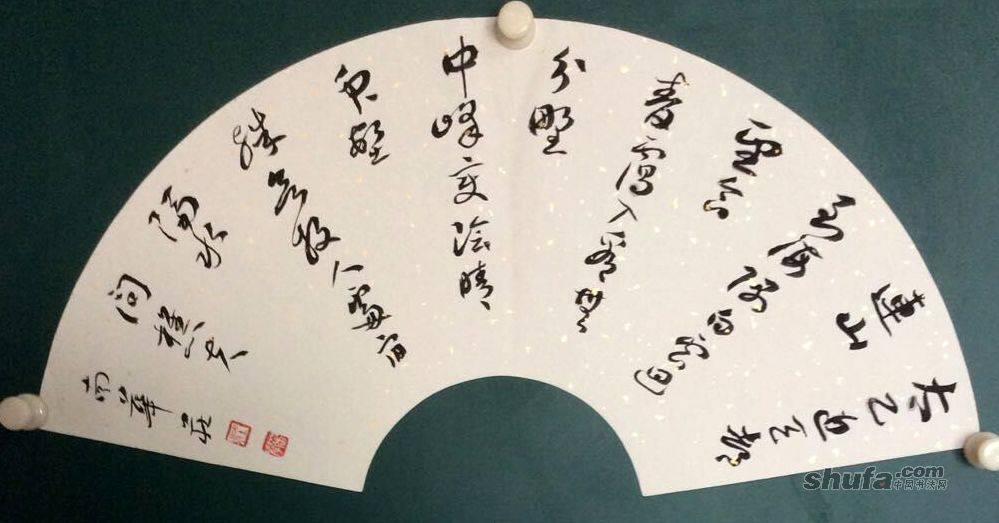 太乙近天都
連山
到海隅白雲回
望合
青靄入看無
分野
中峰变陰晴
衆壑
殊欲投人處宿
隔水
问樵夫
南華
shufa.com
中国书法网